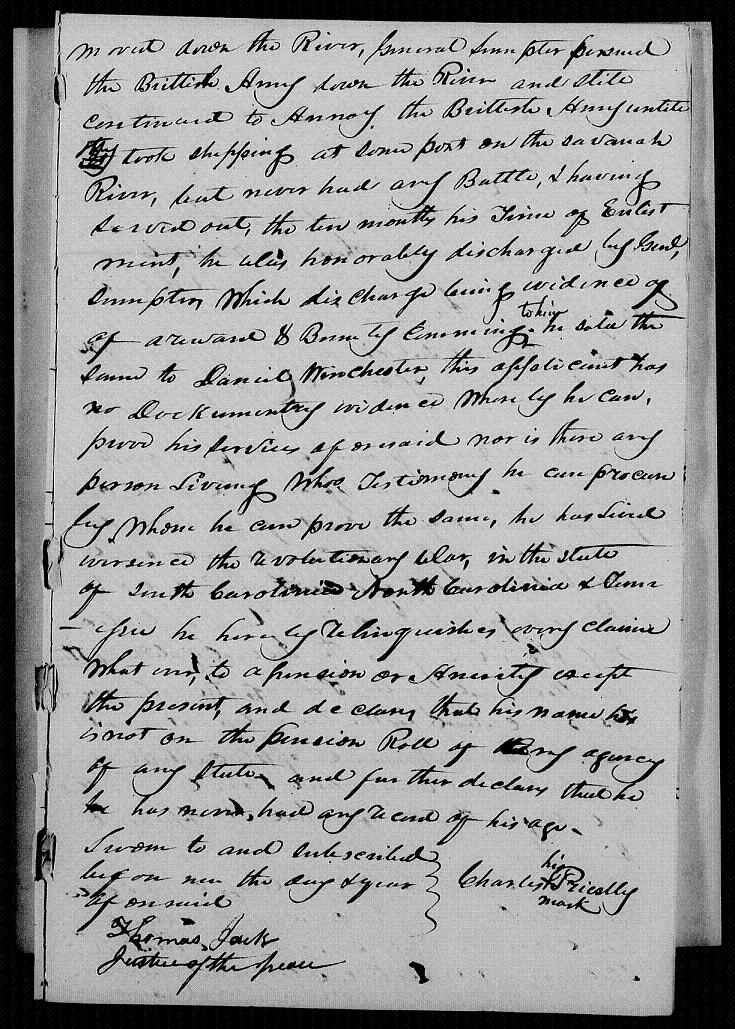 moved down the River, General Sumpter persued
the Brittish Army down the River and still
continued to Annoy the Brittish Army untill
they took shipping at some port on the savanah
River, but never had any Battle, & having
served out, the ten months his Time of Enlist
ment, he was honorably discharged by Genl,
Sumpter, Which discharge being evidence of
of a reward & Bounty Comming to him he sold the
same to Daniel Winchester, this applicant has
no Dockumentry evidence Whereby he can,
prove his services aforesaid nor is there any
person Living Whos Testimony he can procure
by Whom he can prove the same, he has lived
ever since the revolutionary War, in the state
of South Carolinia North Carolinia & Tenn
-essee he hereby relinquishes every claim
What ever, to a pension or Anuity except
the present, and declares that his name
is not on the pension Roll of any agency
of any state and further declars that he
has never had any record of his age -
Sworn to and subscribed
before me the day & year
aforesaid
Charles his mark Priestly
Thomas Jack
Justice of the peace